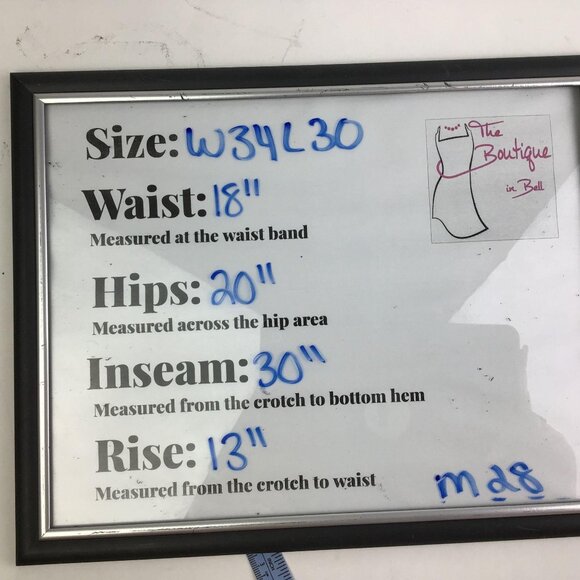 Size: W34L30
The
Boutique
in Bell
Waist: 18"
Measured at the waist band
Hips: 20"
Measured across the hip area
Inseam: 30"
Measured from the crotch to bottom hem
Rise: 13"
Measured from the crotch to waist
M 28